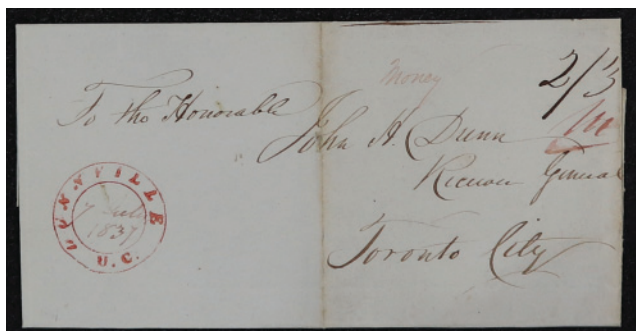 Money
2/3
To the Honorable
John H. Dunn
Receiver General
Toronto City
DUNNVILLE
7 July
1837
U.C.